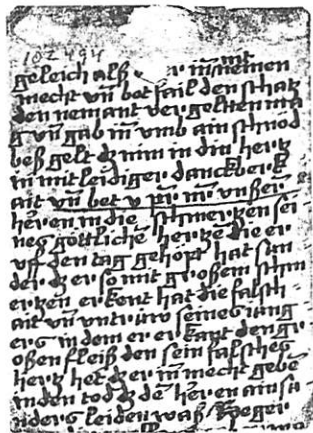 102494
geleich alß er im nemen
mecht vñ bet fail den schatz
den nemant vergeltten ma
g vñ gab in vmb ain schnod
beß gelt dz nim in din hertz
in mitleidiger danckberk
ait vñ bet v pr nr vnßerẽ
herren in die schmertzen sei
nes gottlichẽ hertze die er
vff den tag gehopt hat sun
der dz er so mit großem schm
ertzen erkent hat die falsch
ait vñ vntriw seines iung
ers in dem er erkant den gr
oßen fleiß den sein falsches
hertz het dz er in mecht gebẽ
in den tod dz dẽ herren ain sũ
nders leiden waß